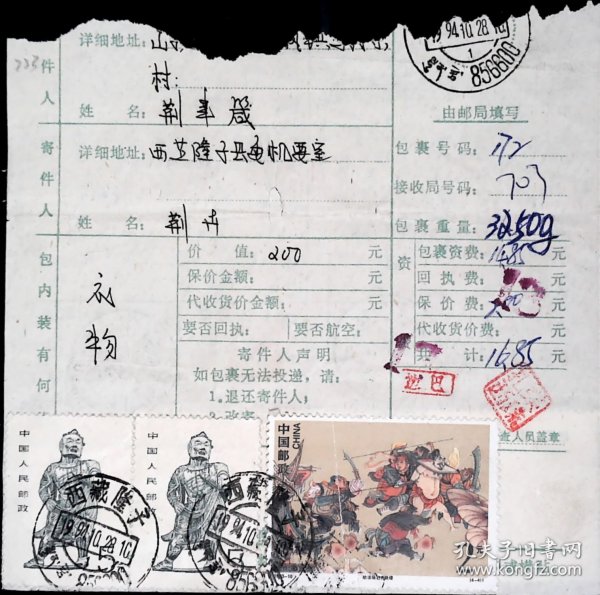 件人
详细地址:
村:
姓 名: 荆
寄件人
详细地址: 西芷隆子县电机要室
姓 名: 荆
由邮局填写
包裹号码: 172
接收局号码: 703
包裹重量: 3250g
包内装有何
衣物
价 值: 200 元
保价金额: 元
代收货价金额: 元
要否回执: 要否航空:
寄件人声明
如包裹无法投递,请:
1.退还寄件人;
资
包裹资费: 14.85 元
回执费: 元
保价费: 2.00 元
代收货价费: 元
共 计: 16.85 元
19 94.10.28.10
1
856600
中国人民邮政
中国人民邮政
中国邮政
CHINA
西藏 隆子
19.94.10.28.10
856600
西藏 隆子
19.94.10.28.10
8566
查人员盖章
孔夫子旧书网
www.kongfz.com